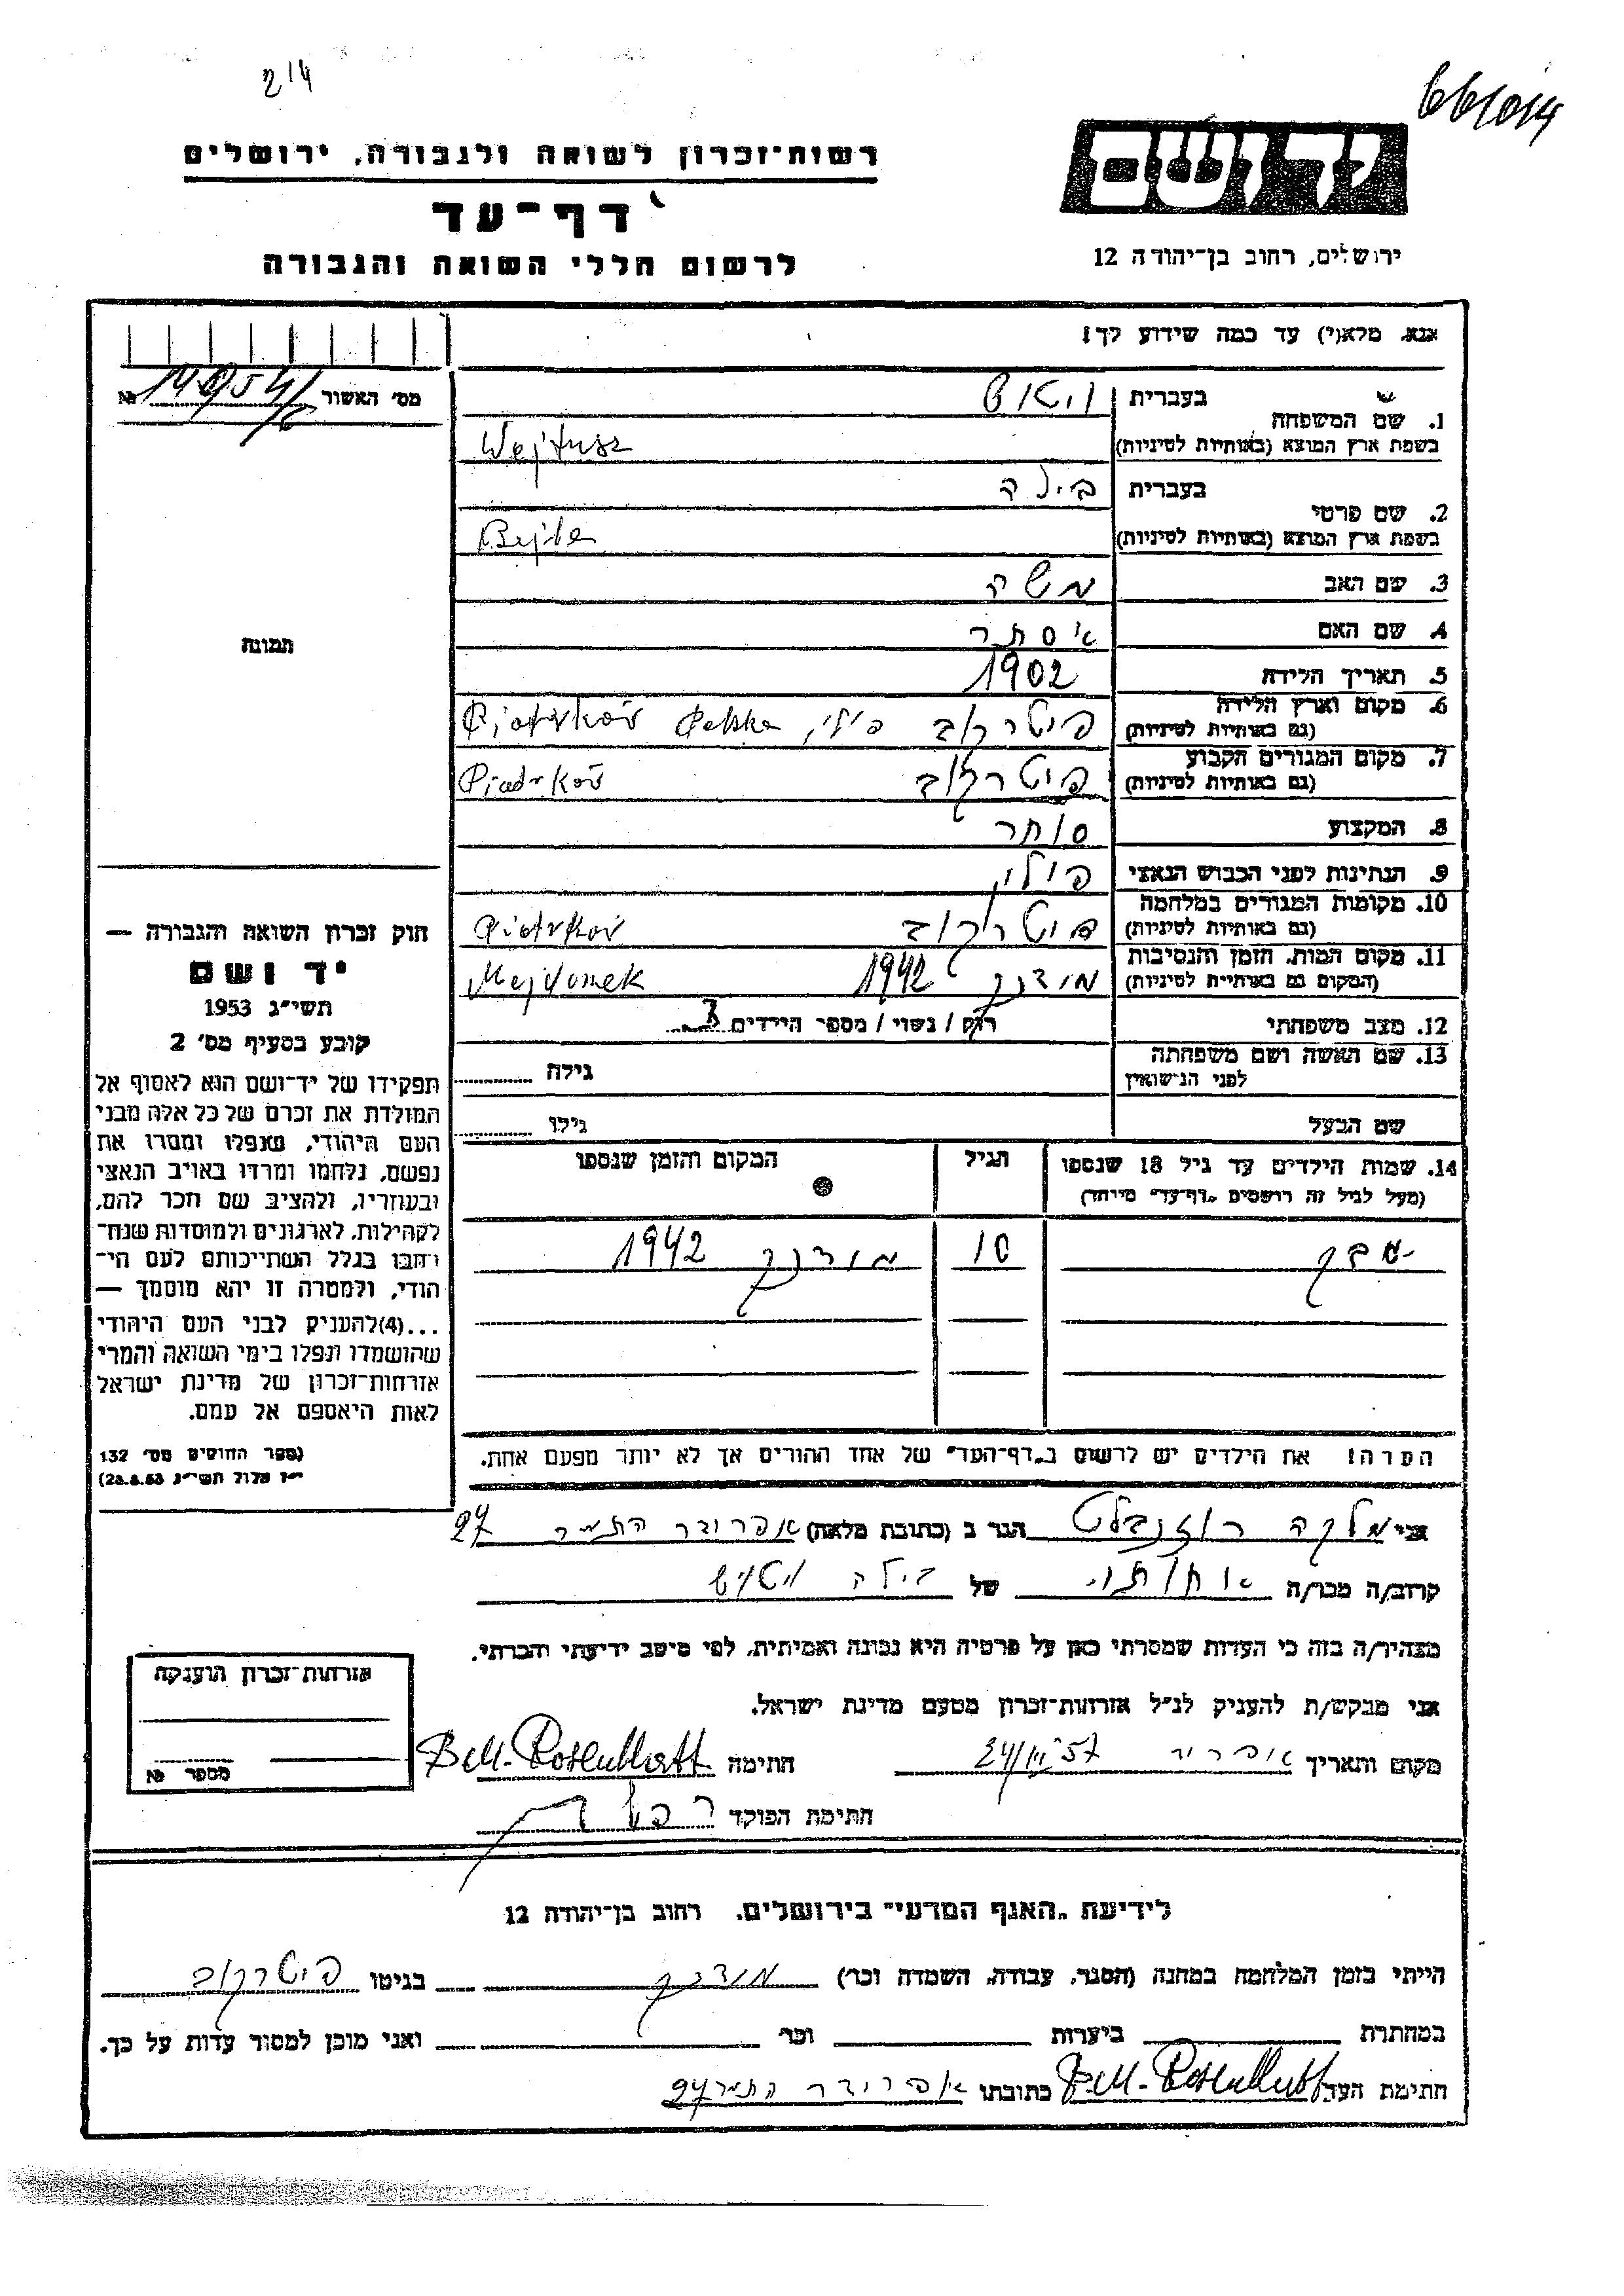 214
661014
רשות־זכרון לשואה ולגבורה, ירושלים
דף־עד
לרשום חללי השואה והגבורה
יד ושם
ירושלים, רחוב בן־יהודה 12
אנא, מלא(י) עד כמה שידוע לך!
מס' האשור №
1. שם המשפחה
בעברית
בשפת ארץ המוצא (באותיות לטיניות)
Wejtusz
2. שם פרטי
בעברית ביל ה
בשפת ארץ המוצא (באותיות לטיניות) Bejla
3. שם האב משה
4. שם האם אסתר
5. תאריך הלידה 1902
6. מקום וארץ הלידה פיטרקוב פולין Piotrków Polska
(גם באותיות לטיניות)
7. מקום המגורים הקבוע פיטרקוב Piotrków
(גם באותיות לטיניות)
8. המקצוע סוחר
9. הנתינות לפני הכבוש הנאצי פולין
10. מקומות המגורים במלחמה פיטרקוב Piotrków
(גם באותיות לטיניות)
11. מקום המות, הזמן והנסיבות מידנק 1942 Majdanek
(המקום גם באותיות לטיניות)
12. מצב משפחתי רוק / נשוי / מספר הילדים
13. שם האשה ושם משפחתה גילה
לפני הנישואין
שם הבעל גילו
14. שמות הילדים עד גיל 18 שנספו הגיל המקום והזמן שנספו
(מעל לגיל זה רושמים "דף־עד" מיוחד)
10 מידנק 1942
הערה! את הילדים יש לרשום ב"דף־העד" של אחד ההורים אך לא יותר מפעם אחת.
תמונה
חוק זכרון השואה והגבורה —
יד ושם
תשי"ג 1953
קובע בסעיף מס' 2
תפקידו של יד־ושם הוא לאסוף אל
המולדת את זכרם של כל אלה מבני
העם היהודי, שנפלו ומסרו את
נפשם, נלחמו ומרדו באויב הנאצי
ובעוזריו, ולהציב שם וזכר להם,
לקהילות, לארגונים ולמוסדות שנח־
רבו בגלל השתייכותם לעם הי־
הודי, ולמטרה זו יהא מוסמך —
...(4)להעניק לבני העם היהודי
שהושמדו ונפלו בימי השואה והמרי
אזרחות־זכרון של מדינת ישראל
לאות היאספם אל עמם.
(ספר החוקים מס' 132
י"ז אלול תשי"ג 28.8.53)
אני מלכה רוזנבלט הגר ב (כתובת מלאה) אפרידר התמר 27
קרוב/ה מכר/ה אחותי של בילה ויטוש
מצהיר/ה בזה כי העדות שמסרתי כאן על פרטיה היא נכונה ואמיתית, לפי מיטב ידיעתי והכרתי.
אני מבקש/ת להעניק לנ"ל אזרחות־זכרון מטעם מדינת ישראל.
מקום ותאריך אפרידר חתימה B.M. Rosenblatt
חתימת הפוקד
אזרחות־זכרון הוענקה
מספר №
לידיעת "האגף המדעי" בירושלים, רחוב בן־יהודה 12
הייתי בזמן המלחמה במחנה (הסגר, עבודה, השמדה וכו') מידנק בגיטו פיטרקוב
במחתרת ביערות וכו' ואני מוכן למסור עדות על כך.
חתימת העד B.M. Rosenblatt כתובתו אפרידר התמר 27